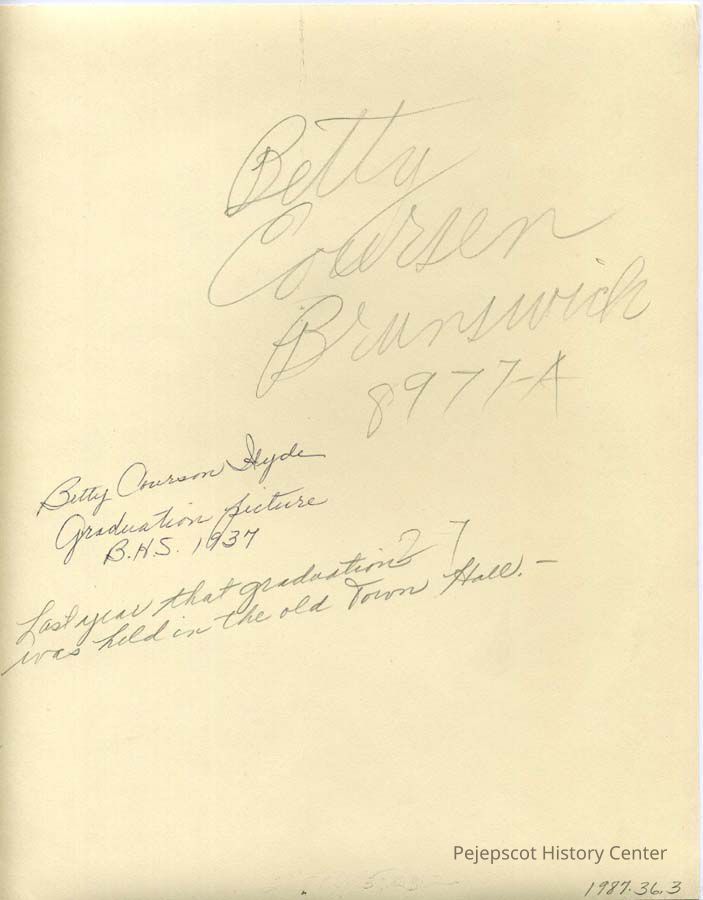 Betty
Coursen
Brunswick
8977-A
Betty Courson Hyde
Graduation picture
B.H.S. 1937
2 7
Last year that graduation
was held in the old Town Hall. –
Pejepscot History Center
1987.36.3